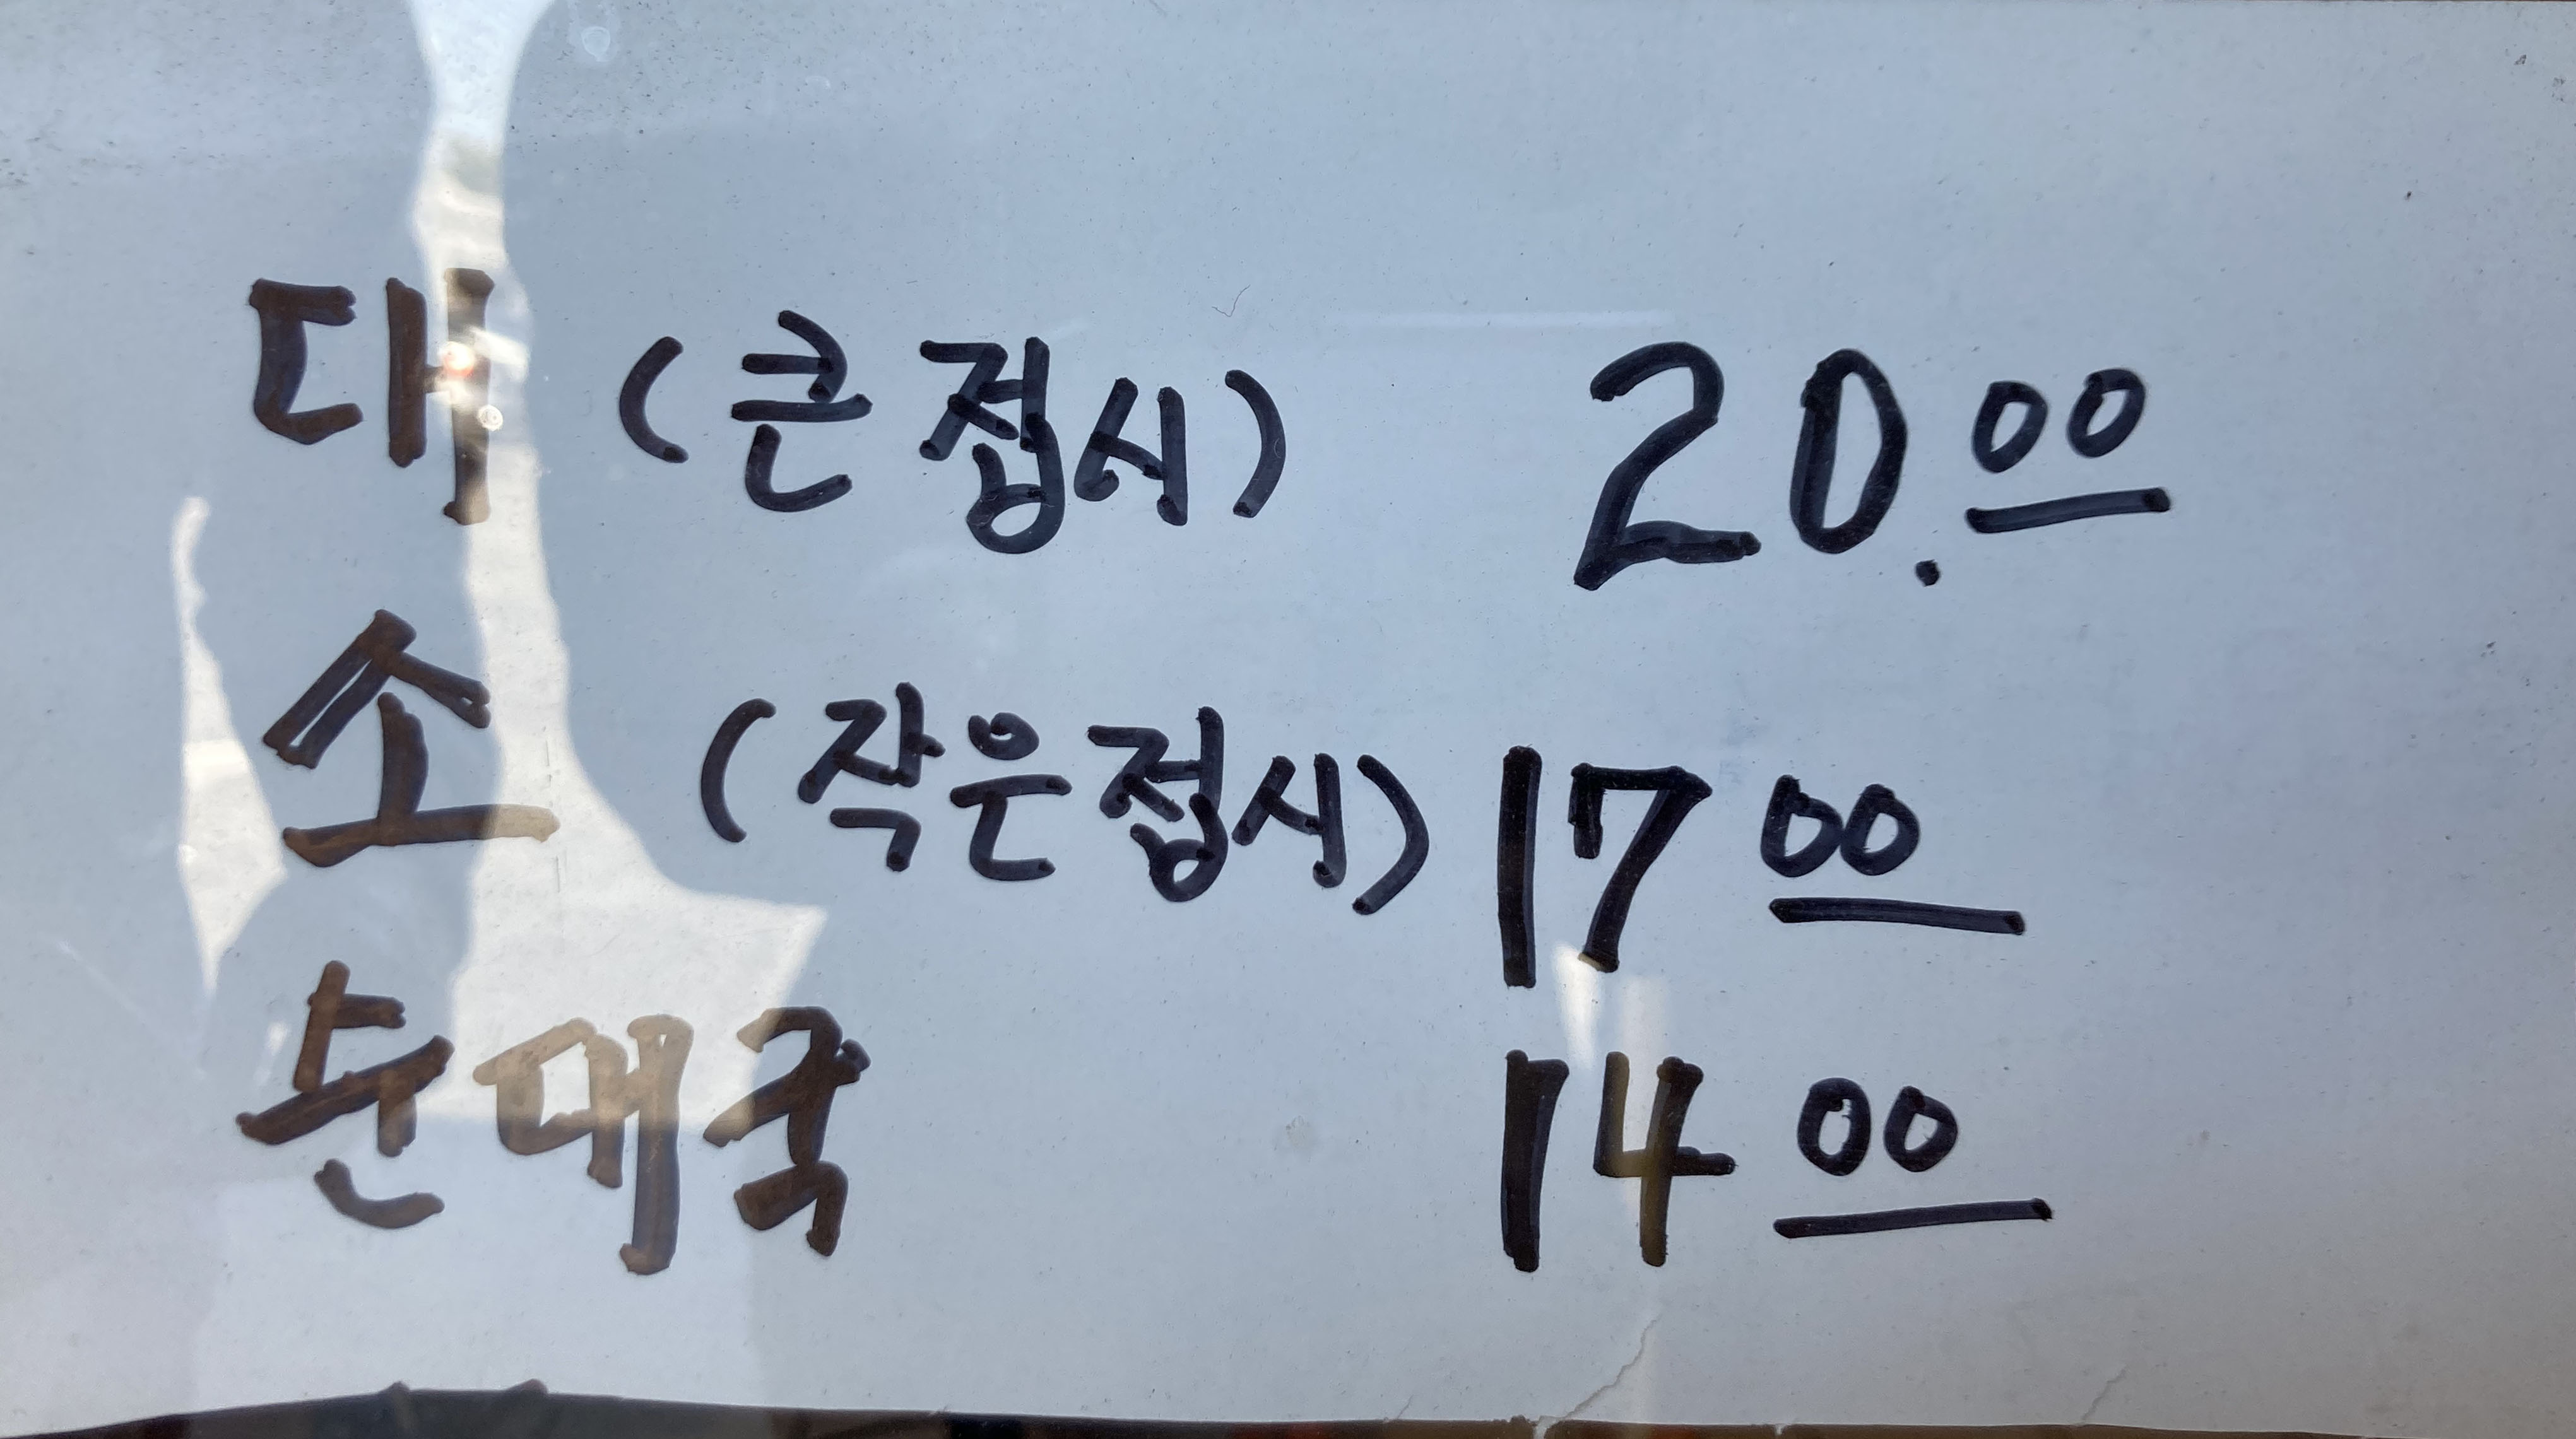 대 (큰접시) 20.00
소 (작은접시) 17 00
순대국 14 00